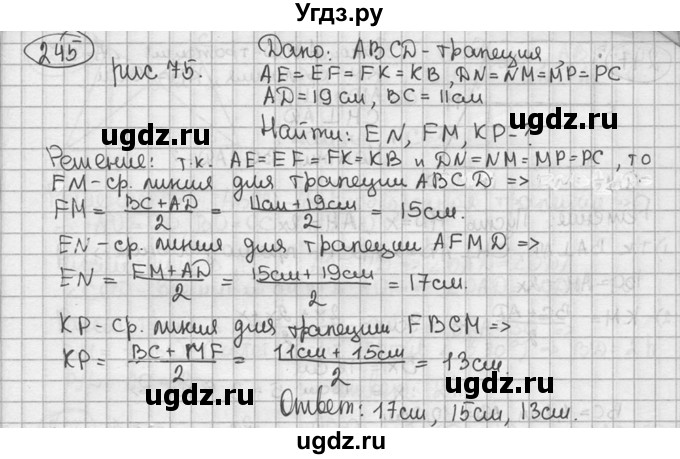 Угдз.ру
245
рис 75.
Дано: ABCD - трапеция,
AE = EF = FK = KB, DN = NM = MP = PC
AD = 19 см, BC = 11 см
ugdz.ru ugdz.ru
Найти: EN, FM, KP - ?
Решение: т.к. AE = EF = FK = KB и DN = NM = MP = PC, то
FM - ср. линия для трапеции ABCD =>
FM = BC + AD / 2 = 11 см + 19 см / 2 = 15 см.
ugdz.ru ugdz.ru
EN - ср. линия для трапеции AFMD =>
EN = EM + AD / 2 = 15 см + 19 см / 2 = 17 см.
ugdz.ru ugdz.ru
KP - ср. линия для трапеции FBCM =>
KP = BC + MF / 2 = 11 см + 15 см / 2 = 13 см.
ugdz.ru ugdz.ru
Ответ: 17 см, 15 см, 13 см.
ugdz.ru